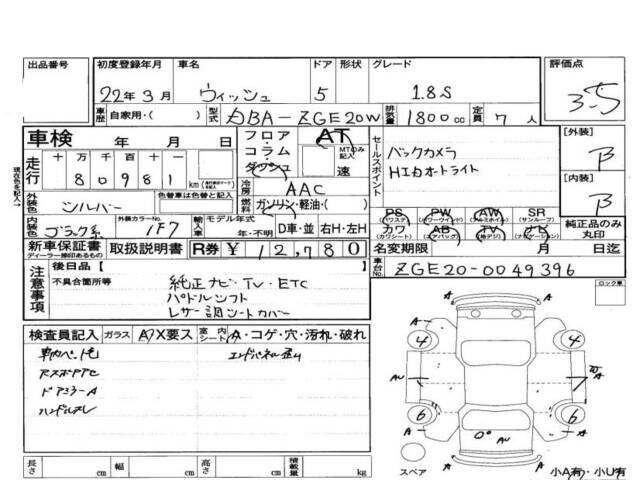 出品番号 初度登録年月 車名 ドア 形状 グレード 評価点
22年3月 ウィッシュ 5 1.8S 3.5
車歴 自家用・( ) 型式 DBA-ZGE20W 排気量 1800cc 定員 7人
車検 年 月 日 フロア・コラム・ダッシュ AT MTのみ記入 速
現状名を記入→
走行 十 万 千 百 十 一
8 0 9 8 1 km
冷房 AAC
外装色 シルバー 色替車は色替と記入 燃料 ガソリン・軽油・( )
内装色 ブラック系 外装カラーNo. 1F7 輸入車 モデル年式 年・不明 D車・並 右H・左H
新車保証書 ディーラー捺印あるもの 取扱説明書 R券 ¥12,780
セールスポイント
バックカメラ
HIDオートライト
PS PW AW SR
(パワステ) (パワーウインド) (アルミホイール) (サンルーフ)
カワ AB TV ナビ
(カワシート) (エアバッグ) (ナビゲーション)
[外装] B
[内装] B
純正品のみ丸印
名変期限 月 日迄
車台No. ZGE20-0049396
注意事項
後日品【 】
不具合箇所等
純正ナビ・TV・ETC
パドルシフト
レザー調シートカバー
ロック車
検査員記入 ガラス A/X要ス 室内シート A・コゲ・穴・汚れ・破れ
エンドパネル歪ム
ドアミラーA
ハンドルスレ
A A
4 4
AU A
6 6
A A
AU
A A
スペア 小A有・小U有
長さ cm 幅 cm 高さ cm 積載量 kg